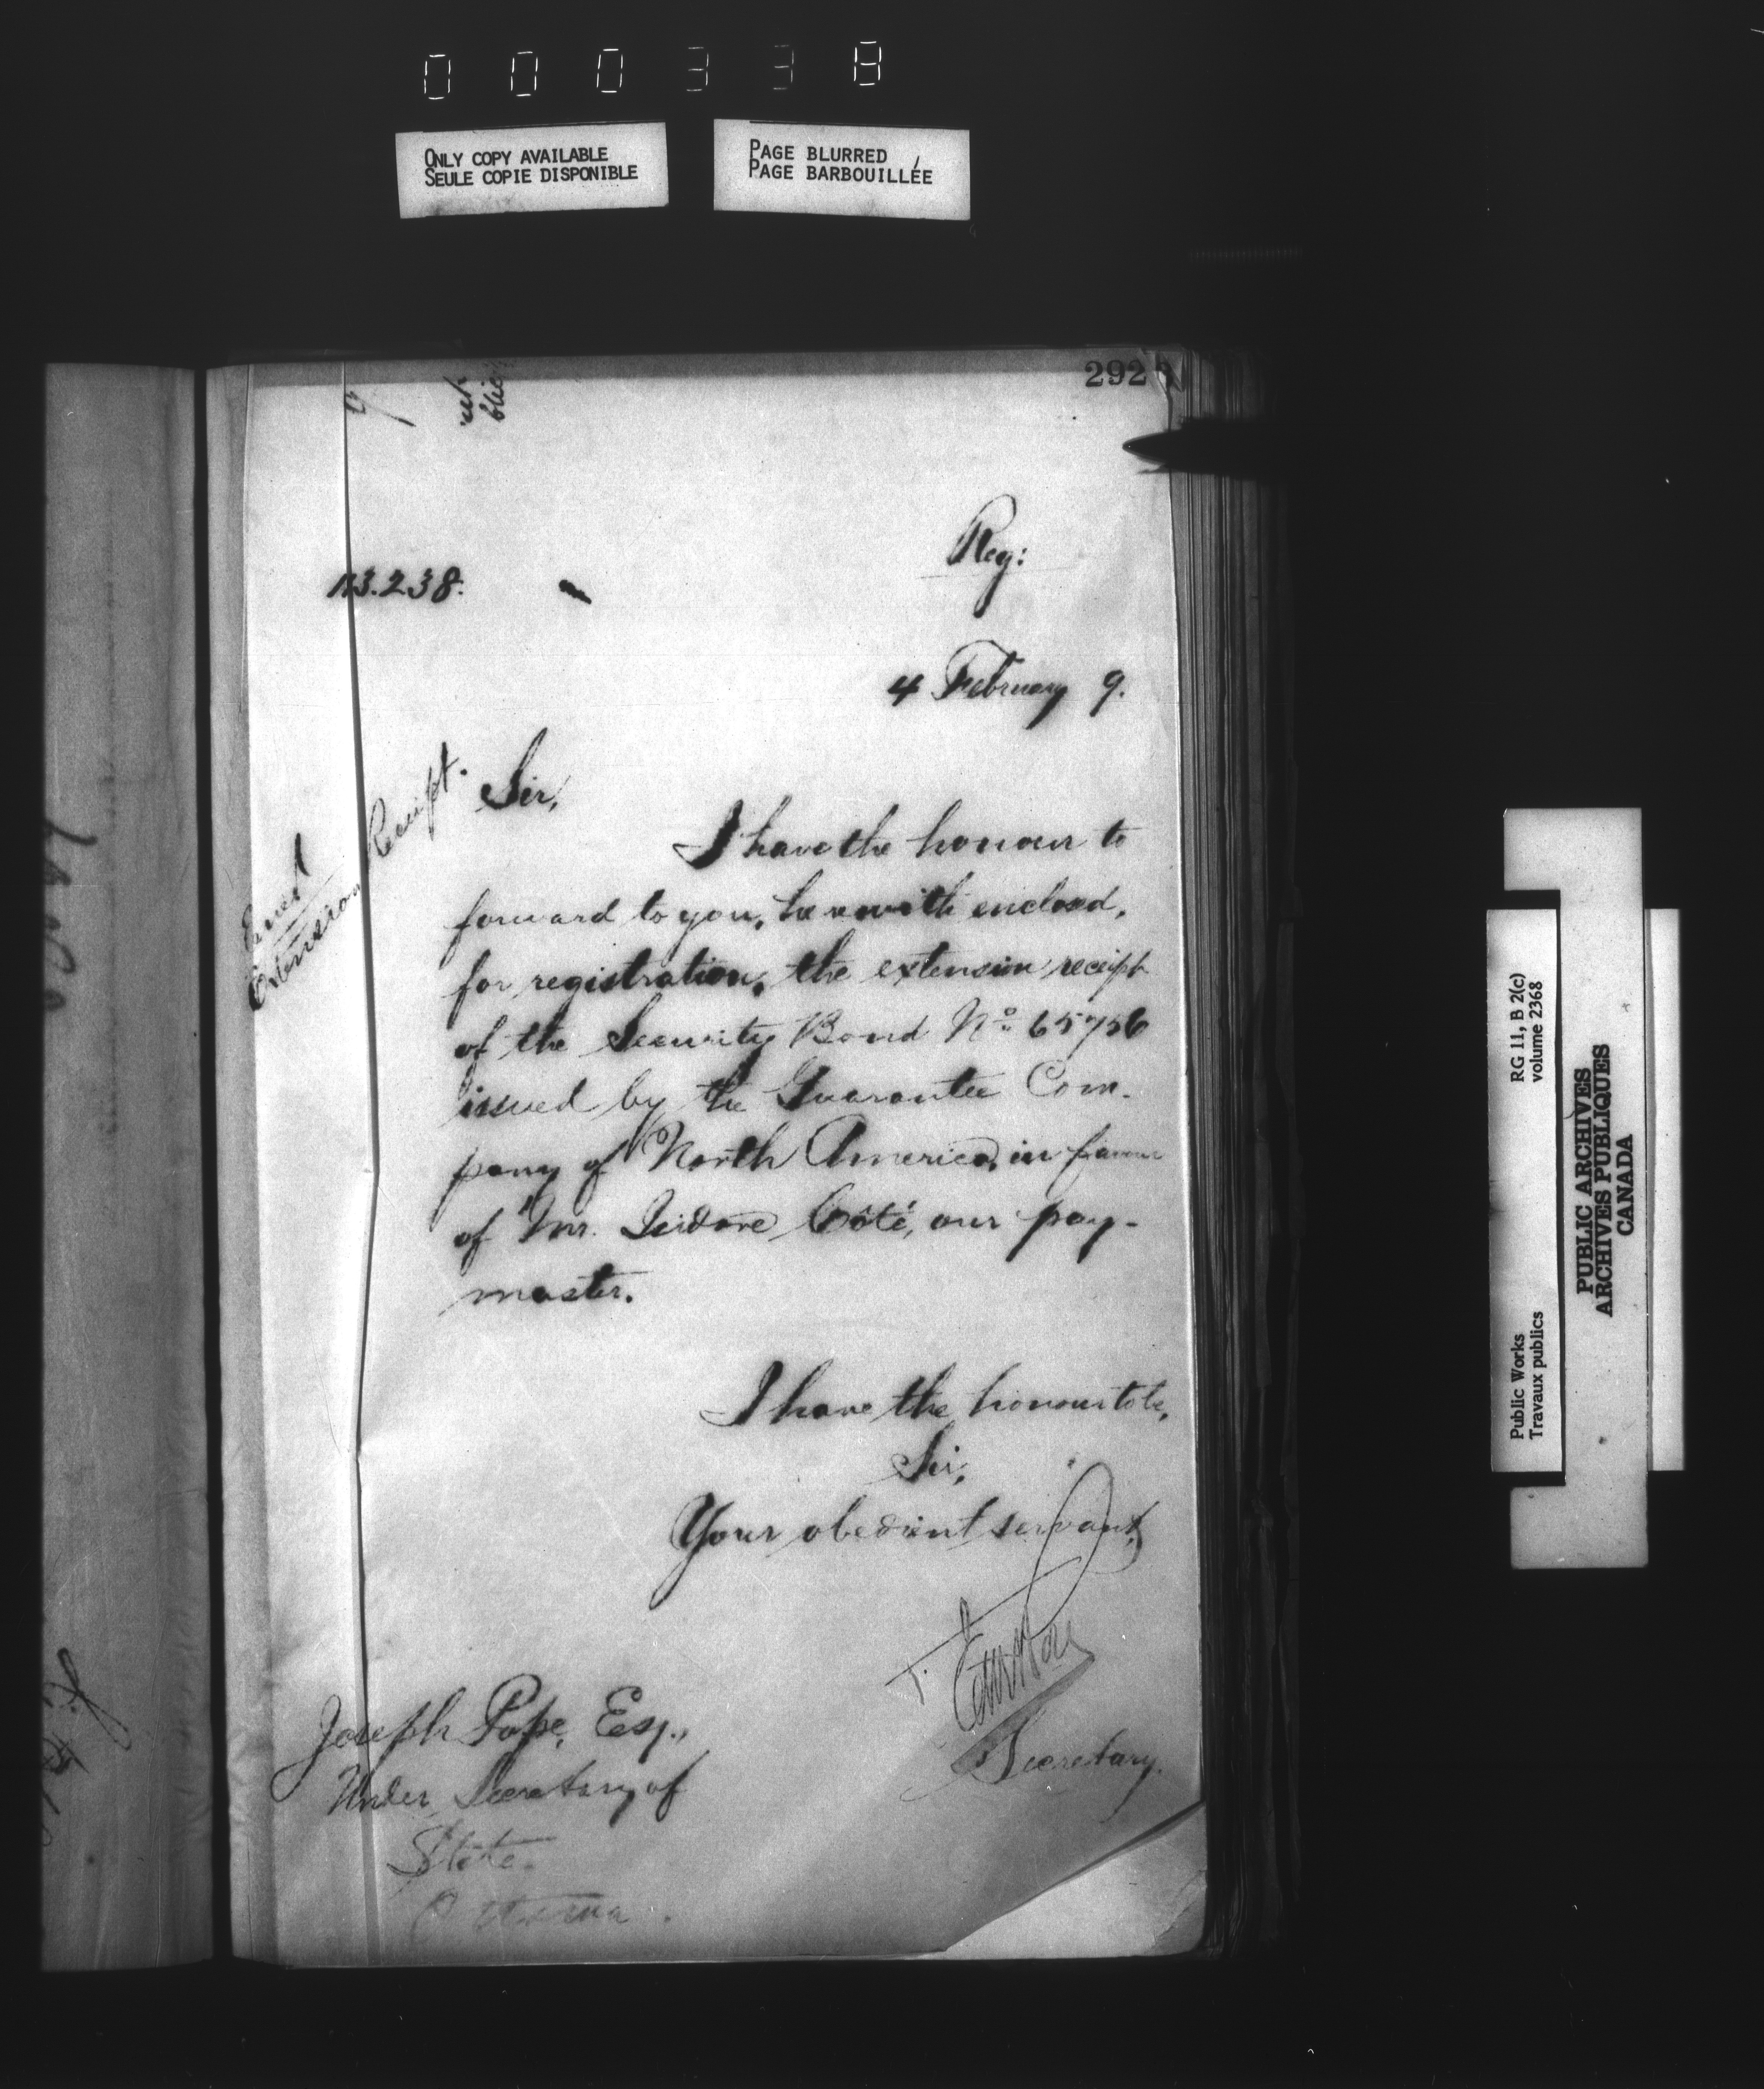 000338
ONLY COPY AVAILABLE
SEULE COPIE DISPONIBLE
PAGE BLURRED
PAGE BARBOUILLÉE
292
Reg:
113.238.
4 February 9.
Extension Receipt.
Sir,
I have the honour to
forward to you, herewith enclosed,
for registration, the extension receipt
of the Security Bond No 65756
issued by the Guarantee Com-
pany of North America, in favour
of Mr. Isidore Côté, our pay-
master.
I have the honour to be,
Sir,
Your obedient servant,
Secretary.
Joseph Pope, Esq.,
Under Secretary of
State.
Ottawa.
Public Works
Travaux publics
RG 11, B 2(c)
volume 2368
PUBLIC ARCHIVES
ARCHIVES PUBLIQUES
CANADA